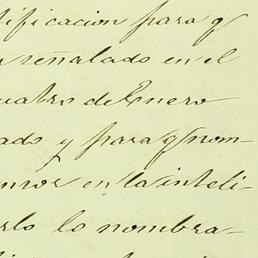 tificacion para q
señalado en el
uatro de Enero
ado y para q nom-
en la inteli-
rlo lo nombra-